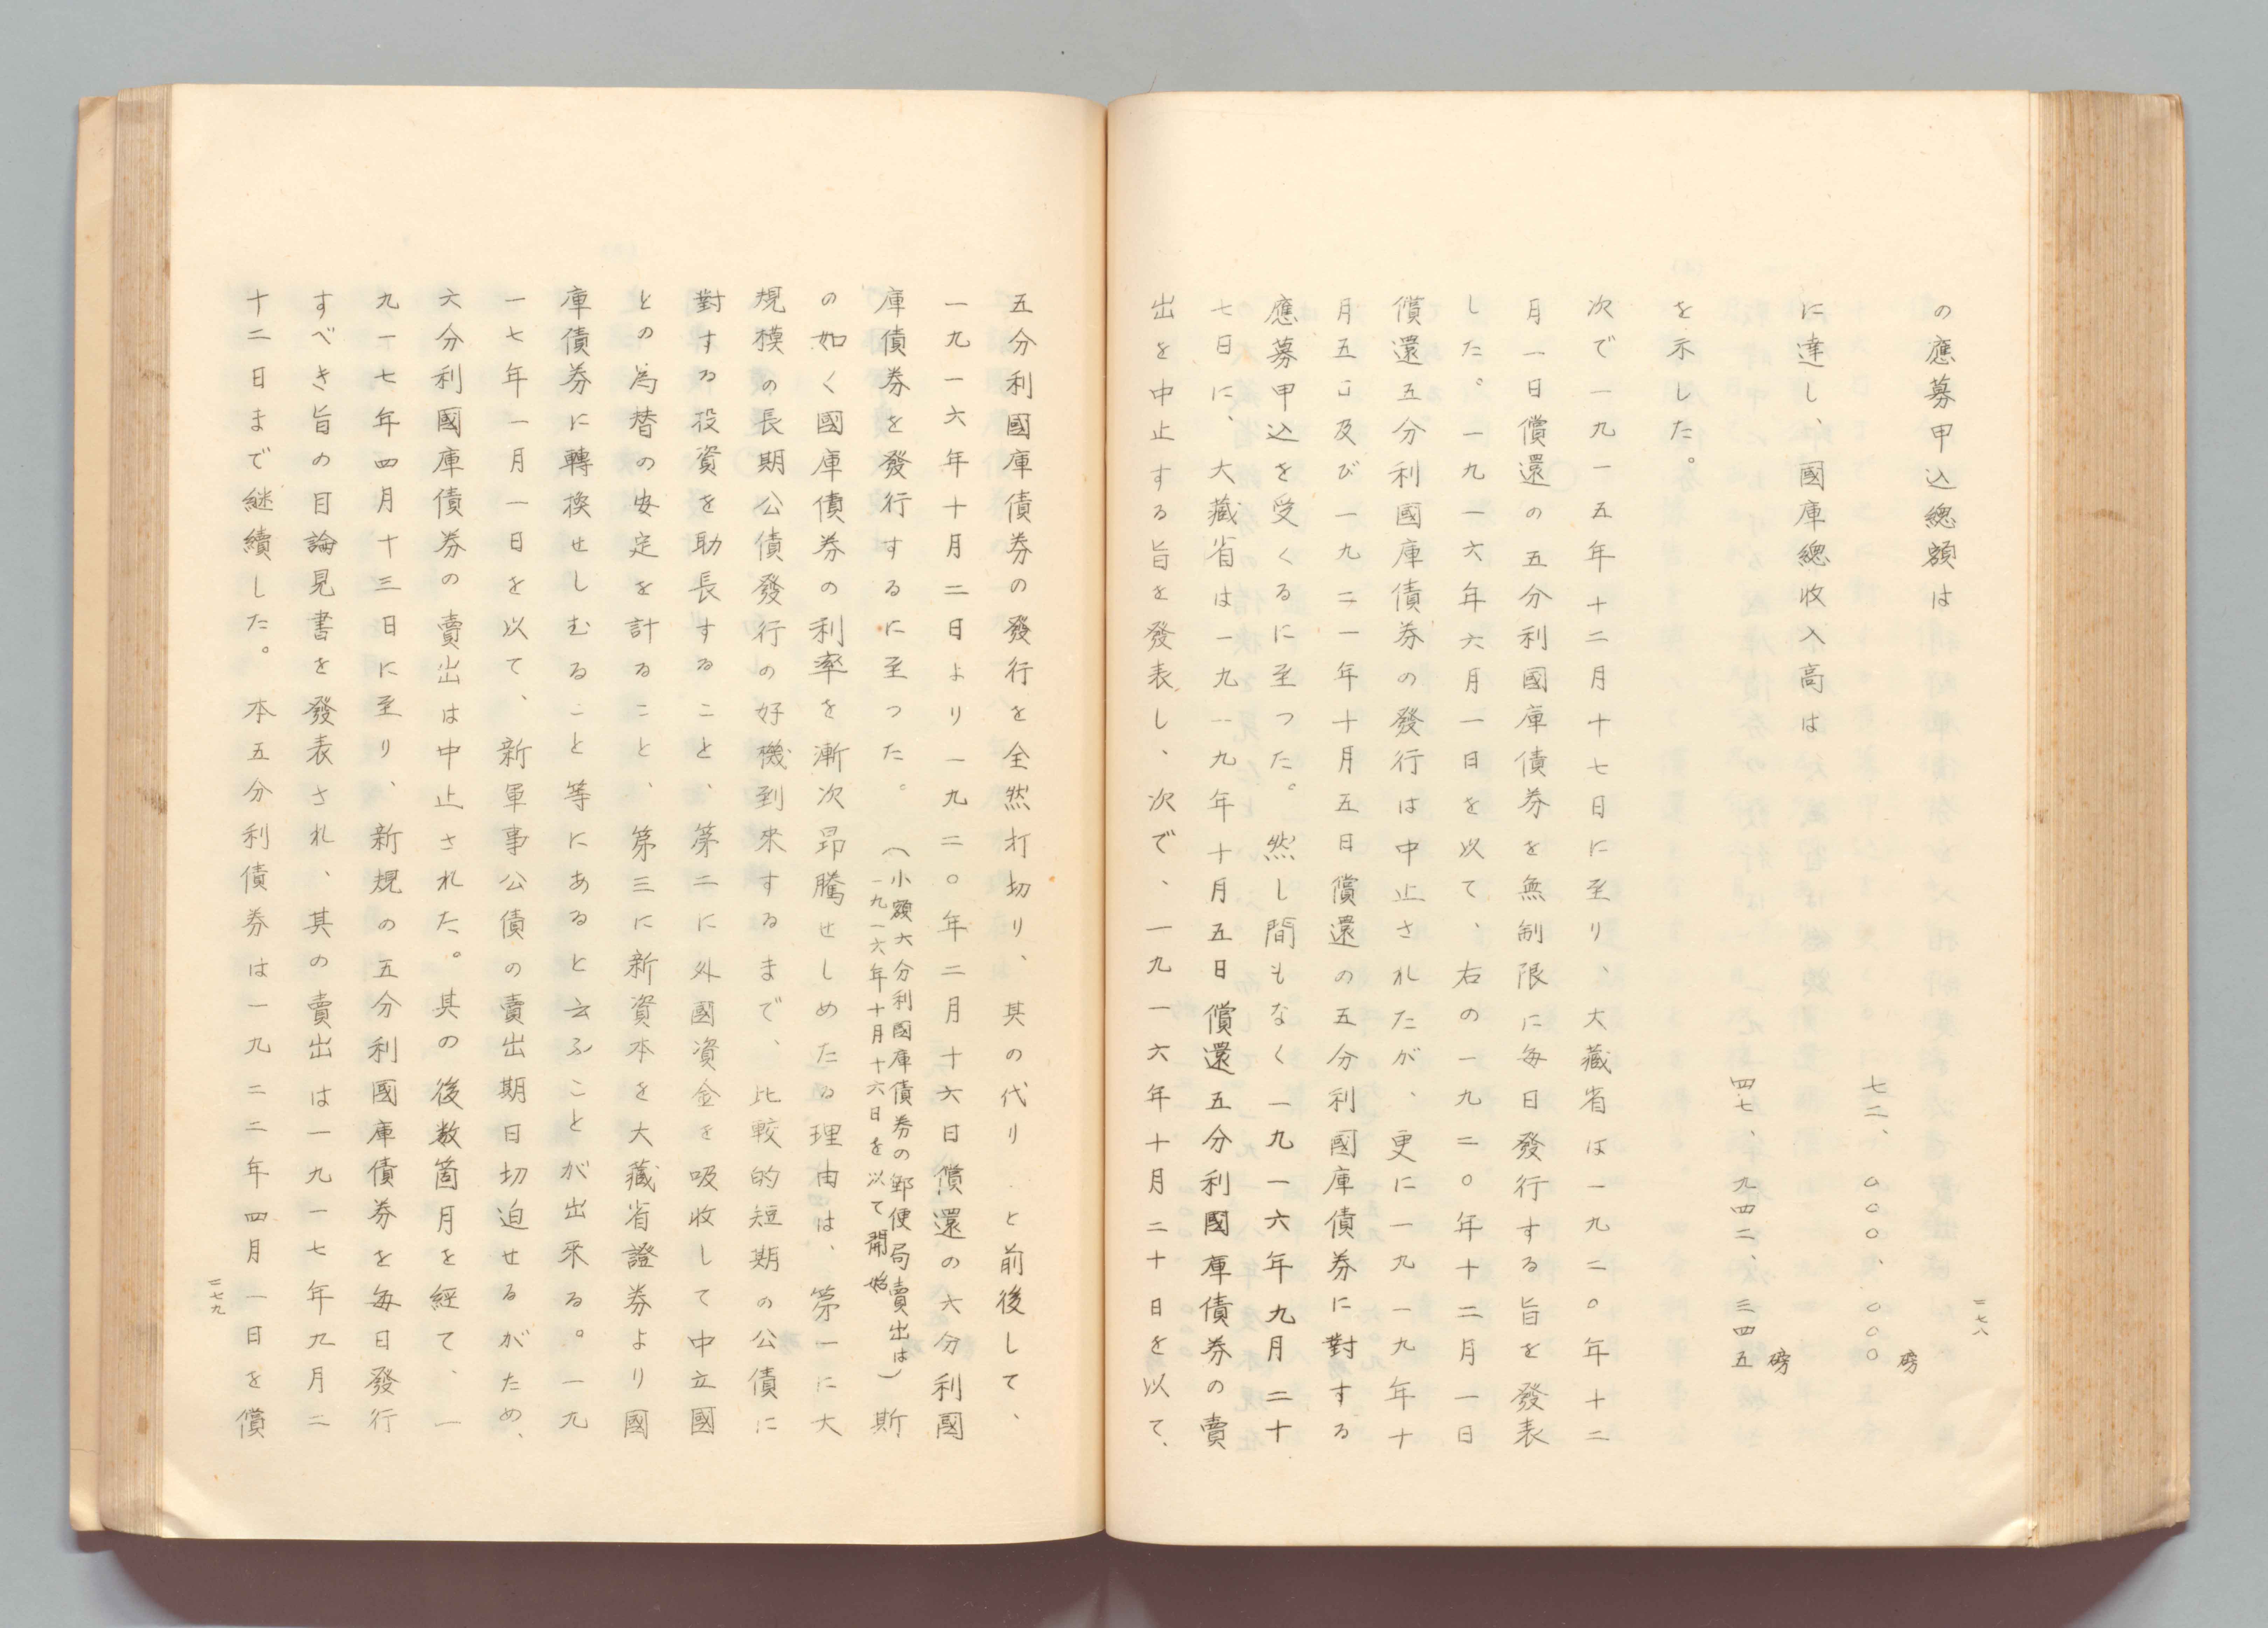 の應募申込總額は
七二、〇〇〇、〇〇〇磅
に達し、國庫總收入高は
四七、九四二、三四五磅
を示した。
次で一九一五年十二月十七日に至り、大藏省は一九二〇年十二
月一日償還の五分利國庫債券を無制限に每日發行する旨を發表
した。一九一六年六月一日を以て、右の一九二〇年十二月一日
償還五分利國庫債券の發行は中止されたが、更に一九一九年十
月五日及び一九二一年十月五日償還の五分利國庫債券に對する
應募申込を受くるに至つた。然し間もなく一九一六年九月二十
七日に、大藏省は一九一九年十月五日償還五分利國庫債券の賣
出を中止する旨を發表し、次で、一九一六年十月二十日を以て、
一七八
五分利國庫債券の發行を全然打切り、其の代り と前後して、
一九一六年十月二日より一九二〇年二月十六日償還の六分利國
庫債券を發行するに至つた。(小額六分利國庫債券の郵便局賣出は一九一六年十月十六日を以て開始)斯
の如く國庫債券の利率を漸次昂騰せしめたる理由は、第一に大
規模の長期公債發行の好機到來するまで、比較的短期の公債に
對する投資を助長すること、第二に外國資金を吸收して中立國
との為替の安定を計ること、第三に新資本を大藏省證券より國
庫債券に轉換せしむること等にあると云ふことが出來る。一九
一七年一月一日を以て、新軍事公債の賣出期日切迫せるがため、
六分利國庫債券の賣出は中止された。其の後数箇月を經て、一
九一七年四月十三日に至り、新規の五分利國庫債券を每日發行
すべき旨の目論見書を發表され、其の賣出は一九一七年九月二
十二日まで継續した。本五分利債券は一九二二年四月一日を償
一七九